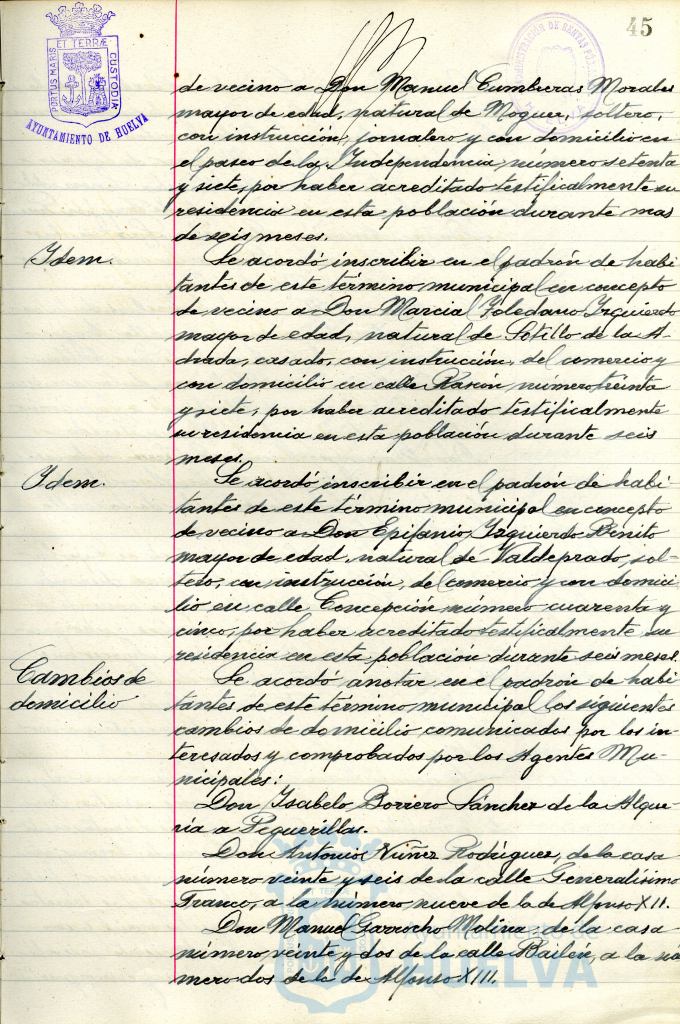 45
PORTUS MARIS ET TERRÆ CUSTODIA
AYUNTAMIENTO DE HUELVA
de vecino a Don Manuel Cumbreras Morales
mayor de edad, natural de Moguer, soltero,
con instrucción, jornalero y con domicilio en
el paseo de la Independencia número setenta
y siete, por haber acreditado testificalmente su
residencia en esta población durante mas
de seis meses.
Idem.
Se acordó inscribir en el padrón de habi-
tantes de este término municipal en concepto
de vecino a Don Marcial Toledano Izquierdo
mayor de edad, natural de Sotillo de la A-
drada, casado, con instrucción, del comercio y
con domicilio en calle Rascón número treinta
y siete, por haber acreditado testificalmente
su residencia en esta población durante seis
meses.
Idem.
Se acordó inscribir en el padrón de habi-
tantes de este término municipal en concepto
de vecino a Don Epifanio Izquierdo Benito
mayor de edad, natural de Valdeprado, sol-
tero, con instrucción, de comercio y con domici-
lio en calle Concepción número cuarenta y
cinco, por haber acreditado testificalmente su
residencia en esta población durante seis meses.
Cambios de
domicilio
Se acordó anotar en el padrón de habi-
tantes de este término municipal los siguientes
cambios de domicilio comunicados por los in-
teresados y comprobados por los Agentes Mu-
nicipales:
Don Isabelo Borrero Sánchez de la Alque-
ria a Peguerillas.
Don Antonio Núñez Rodríguez, de la casa
número veinte y seis de la calle Generalísimo
Franco, a la número nueve de la de Alfonso XII.
Don Manuel Garrocho Molina, de la casa
número veinte y dos de la calle Bailén, a la nú-
mero dos de la de Alfonso XIII.
HUELVA